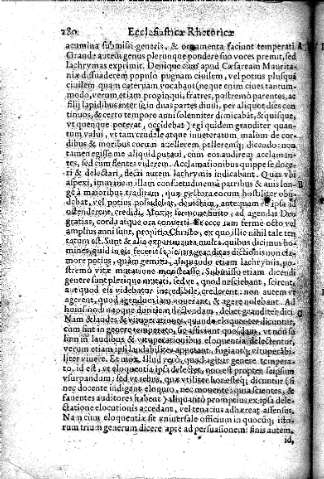 280 Ecclesiasticæ Rhetoricæ
acumina submissi generis, & ornamenta faciunt temperati
Grande autem genus plerunque pondere suo voces premit, sed
lachrymas exprimit. Denique cum apud Cæsaream Mauritaniæ
dissuaderem populo pugnam civilem, vel potius plusquam
civilem quam catervam vocabant (neque enim cives tantummodo,
verum etiam propinqui, fratres, postremò parentes, ac
filij lapidibus inter se in duas partes divisi, per aliquot dies continuos,
& certo tempore anni solenniter dimicabāt, & quisque,
ut quenque poterat, occidebat) egi quidem granditer quantum
valui, ut tam crudele atque inveteratum malum de cordibus
& moribus eorum
tamen egisse me aliquid putavi, cum eos audirem acclamantes,
sed cum flentes viderem. Acclamationibus quippe se doceri
& delectari, flecti autem lachrymis indicabant. Quas ubi
aspexi, immanem illam consuetudinem à patribus & avis longe
à maioribus traditam, quæ pectora eorum hostiliter obsidebat,
vel potius possidebat,
ostenderent, credidi. Moxque sermone finito, ad agendas Deo
gratias, corda atque ora converti. Et ecce iam ferme octo vel
amplius anni sunt, propitio Christo, ex quo illic nihil tale tentatum
est. Sunt & alia experimenta multa, quibus dicimus homines,
quid in eis fecerit
more potius, quàm gemitu, aliquando etiam lachrymis, postremò
vitæ mutatione monstrasse. Submisso etiam dicendi
genere sunt plerique mutati, sed ut, quod nesciebant, scirent,
aut quod eis videbatur incredibile, crederent: non autem ut
agerent, quod agendum iam noverant, & agere nolebant. Ad

Nam & laudes & vituperationes, quando eloquenter dicuntur,
cum sint in genere temperato, sic afficiunt quosdam, ut non solum
in laudibus & vituperationibus eloquentia delectentur,
verum etiam ipsi laudabiliter appetant, fugiantque vituperabiliter
vivere. Et mox. Illud verò, quod agitur genere temperato,
id est, ut eloquentia ipsa delectet, non est propter seipsum
usurpandum, sed ut rebus, quæ utiliter honesteque dicuntur (si
nec docente indigent eloquio, nec movente, quia scientes, &
faventes auditores habent) aliquantò promptius ex ipsa delectatione
elocutionis accedant, vel tenacius adhærescat assensus.
Nam cum eloquentiæ sit universale officium in quocunque istorum
trium generum dicere aptè ad persuasionem: finis autem,
id,